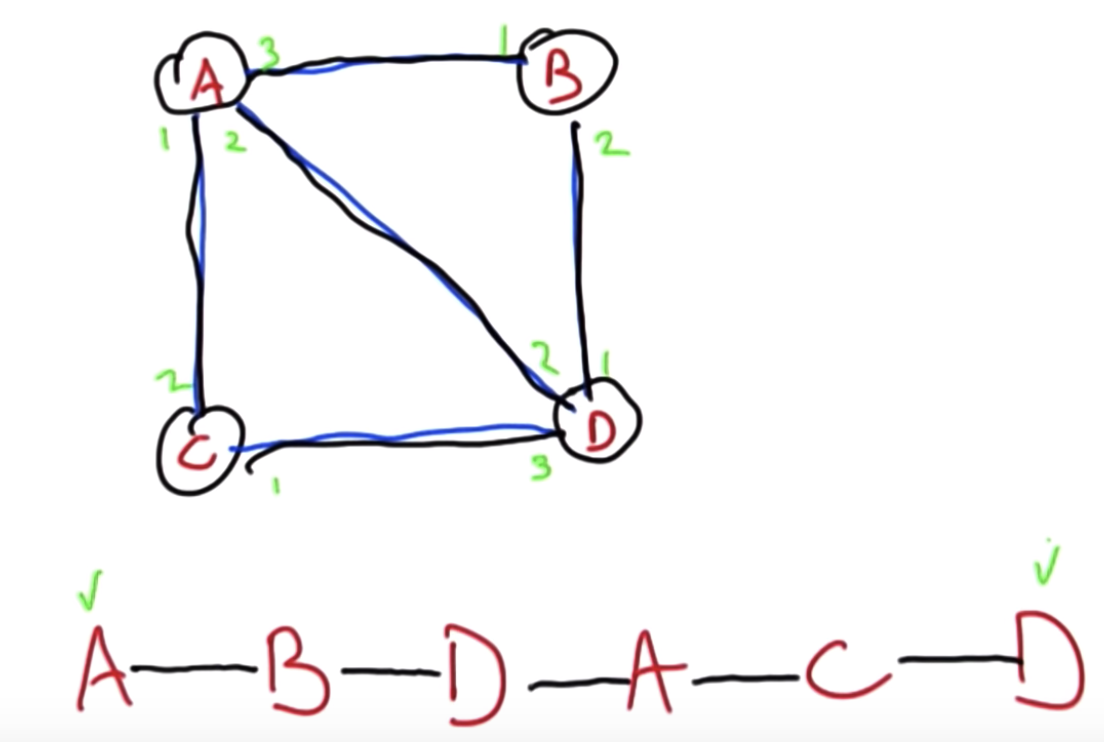 A 3 1 B
1 2 2
2 2 1
C D
1 3
√ √
A — B — D — A — C — D